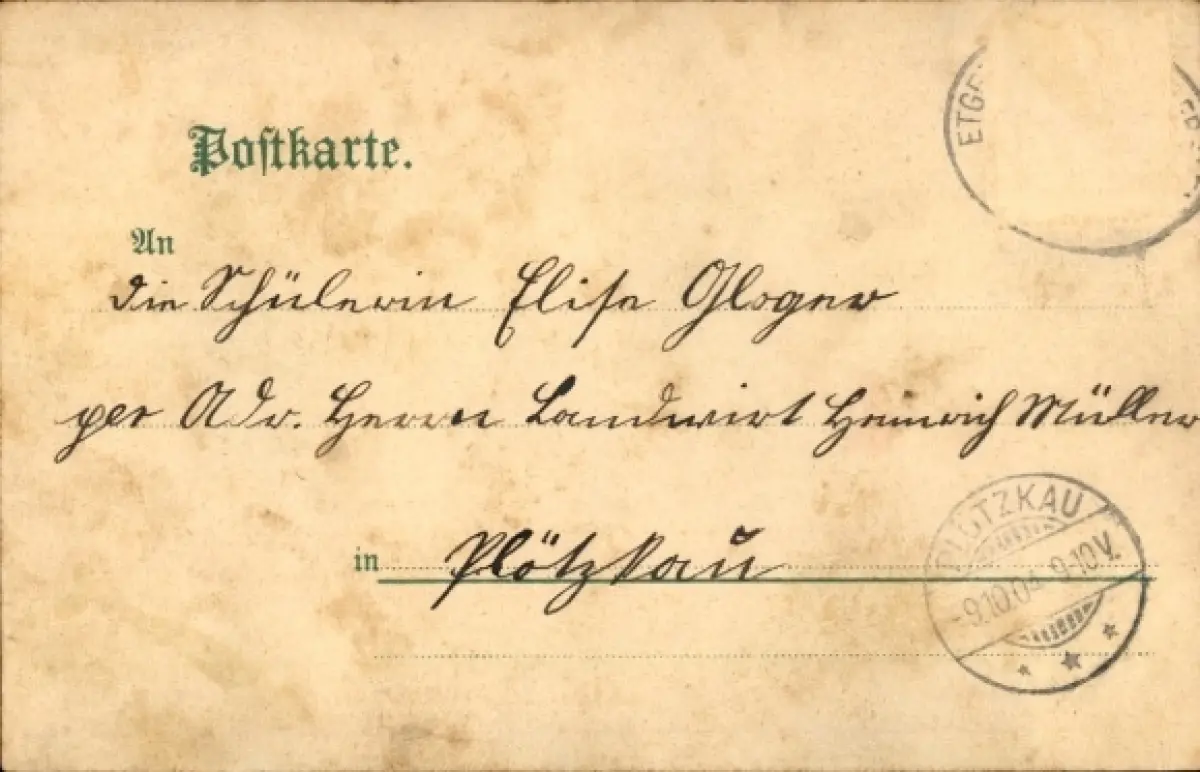 Postkarte.
ETG
An
die Schülerin Elise Gloger
per Adr. Herrn Landwirt Heinrich Müller
in Plötzkau
PLÖTZKAU
-9.10.04. 9-10V.